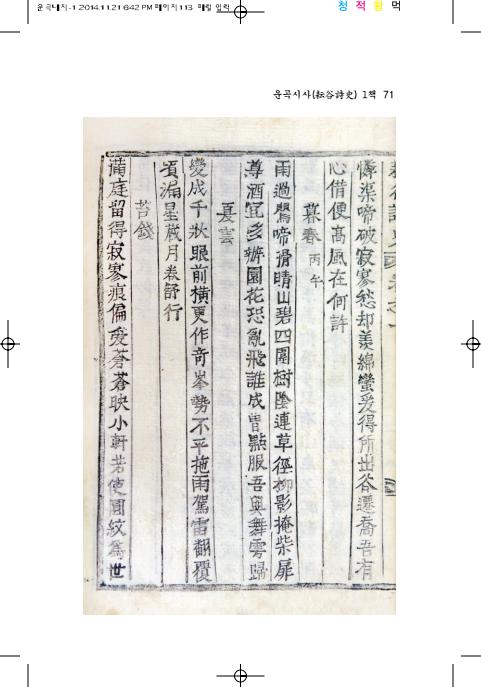 운곡내지-1 2014.11.21 6:42 PM 페이지113
청 적 황 먹
운곡시사(耘谷詩史) 1책 71
憐渠啼破寂寥愁却羨綿蠻爰得所出谷遷喬吾有
心借便高風在何許
暮春 丙午
雨過鶯啼滑晴山碧四圍樹陰連草徑柳影掩柴扉
尊酒宜多辦園花恐亂飛誰成曾點服吾與舞雩歸
夏雲
變成千狀眼前橫更作奇峯勢不平拖雨駕雷翻覆
頃漏星藏月卷舒行
苔錢
滿庭留得寂寥痕偏愛蒼蒼映小軒若使圓紋爲世